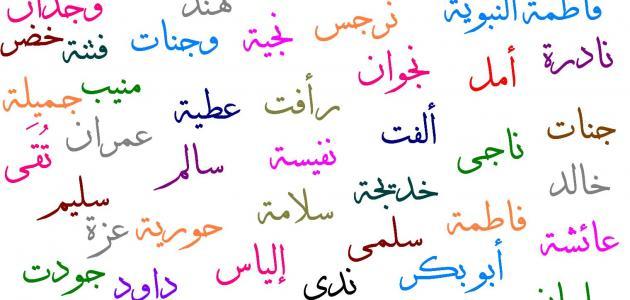 فاطمة النبوية
هند
وجدان
نرجس
نجية
وجنات
فتنة
خضر
نادرة
أمل
نجوان
رأفت
عطية
منيب
جميلة
جنات
ألفت
عمران
ناجى
نفيسة
سالم
تُقَى
خالد
خديجة
سلامة
سليم
فاطمة
عائشة
سلمى
حورية
عزة
أبو بكر
إلياس
ندى
داود
جودت